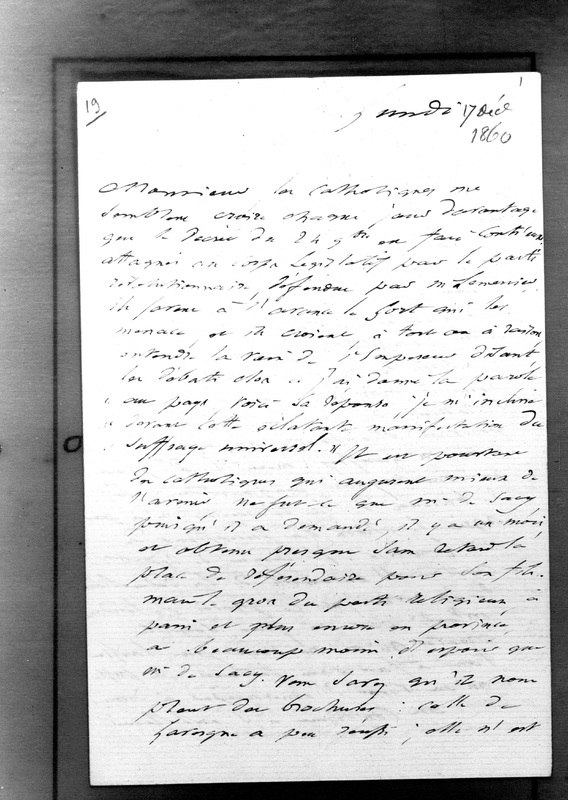 19
1
Lundi 17 Déc
1860
Monsieur les catholiques me
semblent croire chaque jour davantage
que le décret du 24 9bre en fait
attaqués au corps législatif par le parti
révolutionnaire, défendus par m
ils savent à l'avance le sort qui les
menace et ils croient à tort ou à raison
entendre la voix de l'Empereur disant
les débats clos : j'ai donné la parole
au pays voici sa réponse je m'incline
devant cette éclatante manifestation du
suffrage universel. " Il est pourtant
des catholiques qui augurent mieux de
l'avenir ne fut-ce que mr de Sacy
puisqu'il a demandé, il y a un mois
et obtenu presque sans retard la
place de référendaire pour son fils.
mais le gros du parti religieux à
paris et plus encore en province,
a beaucoup moins d'espoir que
mr de Sacy. vous savez qu'il nous
pleut des brochures : celle de
a peu réussi ; elle n'est